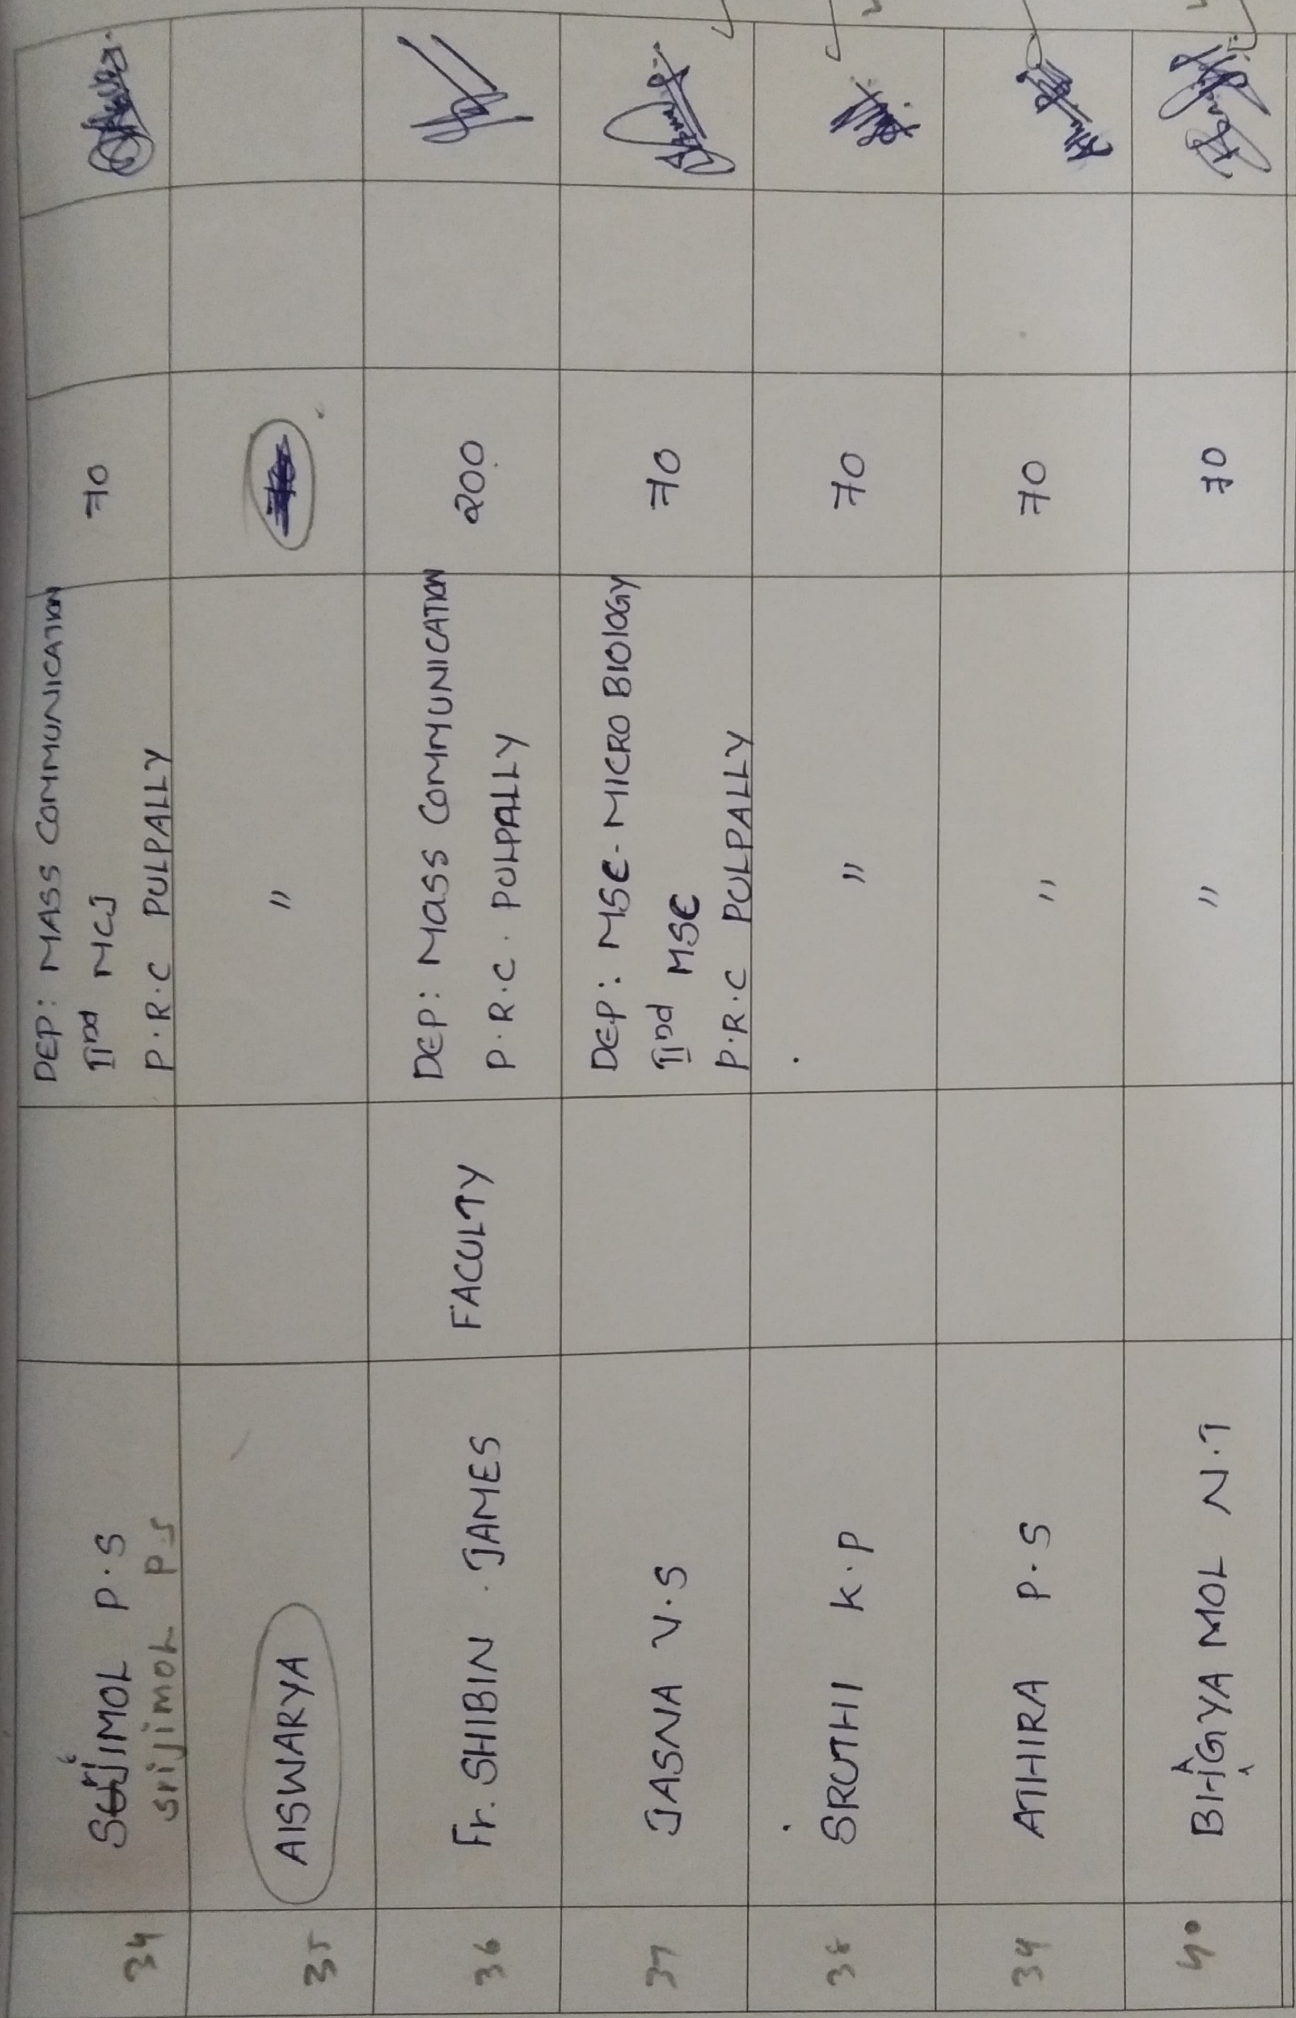 34 SRIJIMOL P.S DEP: MASS COMMUNICATION 70
srijimol Ps IInd MCJ
P.R.C PULPALLY
35 AISWARYA "
36 Fr. SHIBIN JAMES FACULTY DEP: MASS COMMUNICATION 200
P.R.C. PULPALLY
37 JASNA V.S DEP: MSC-MICRO BIOLOGY 70
IInd MSC
P.R.C PULPALLY
38 SRUTHI K.P " 70
39 ATHIRA P.S " 70
40 BHAGYA MOL N.T " 70